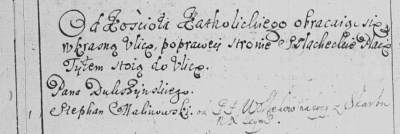 Od Kościoła Katholickiego obracaiąc się
w krasną Vlicę, poprawey stronie Szlacheckie Place
Tyłem stoią do Vlice.
Pana Dukszyńskiego.
Stephan Malinowski. od